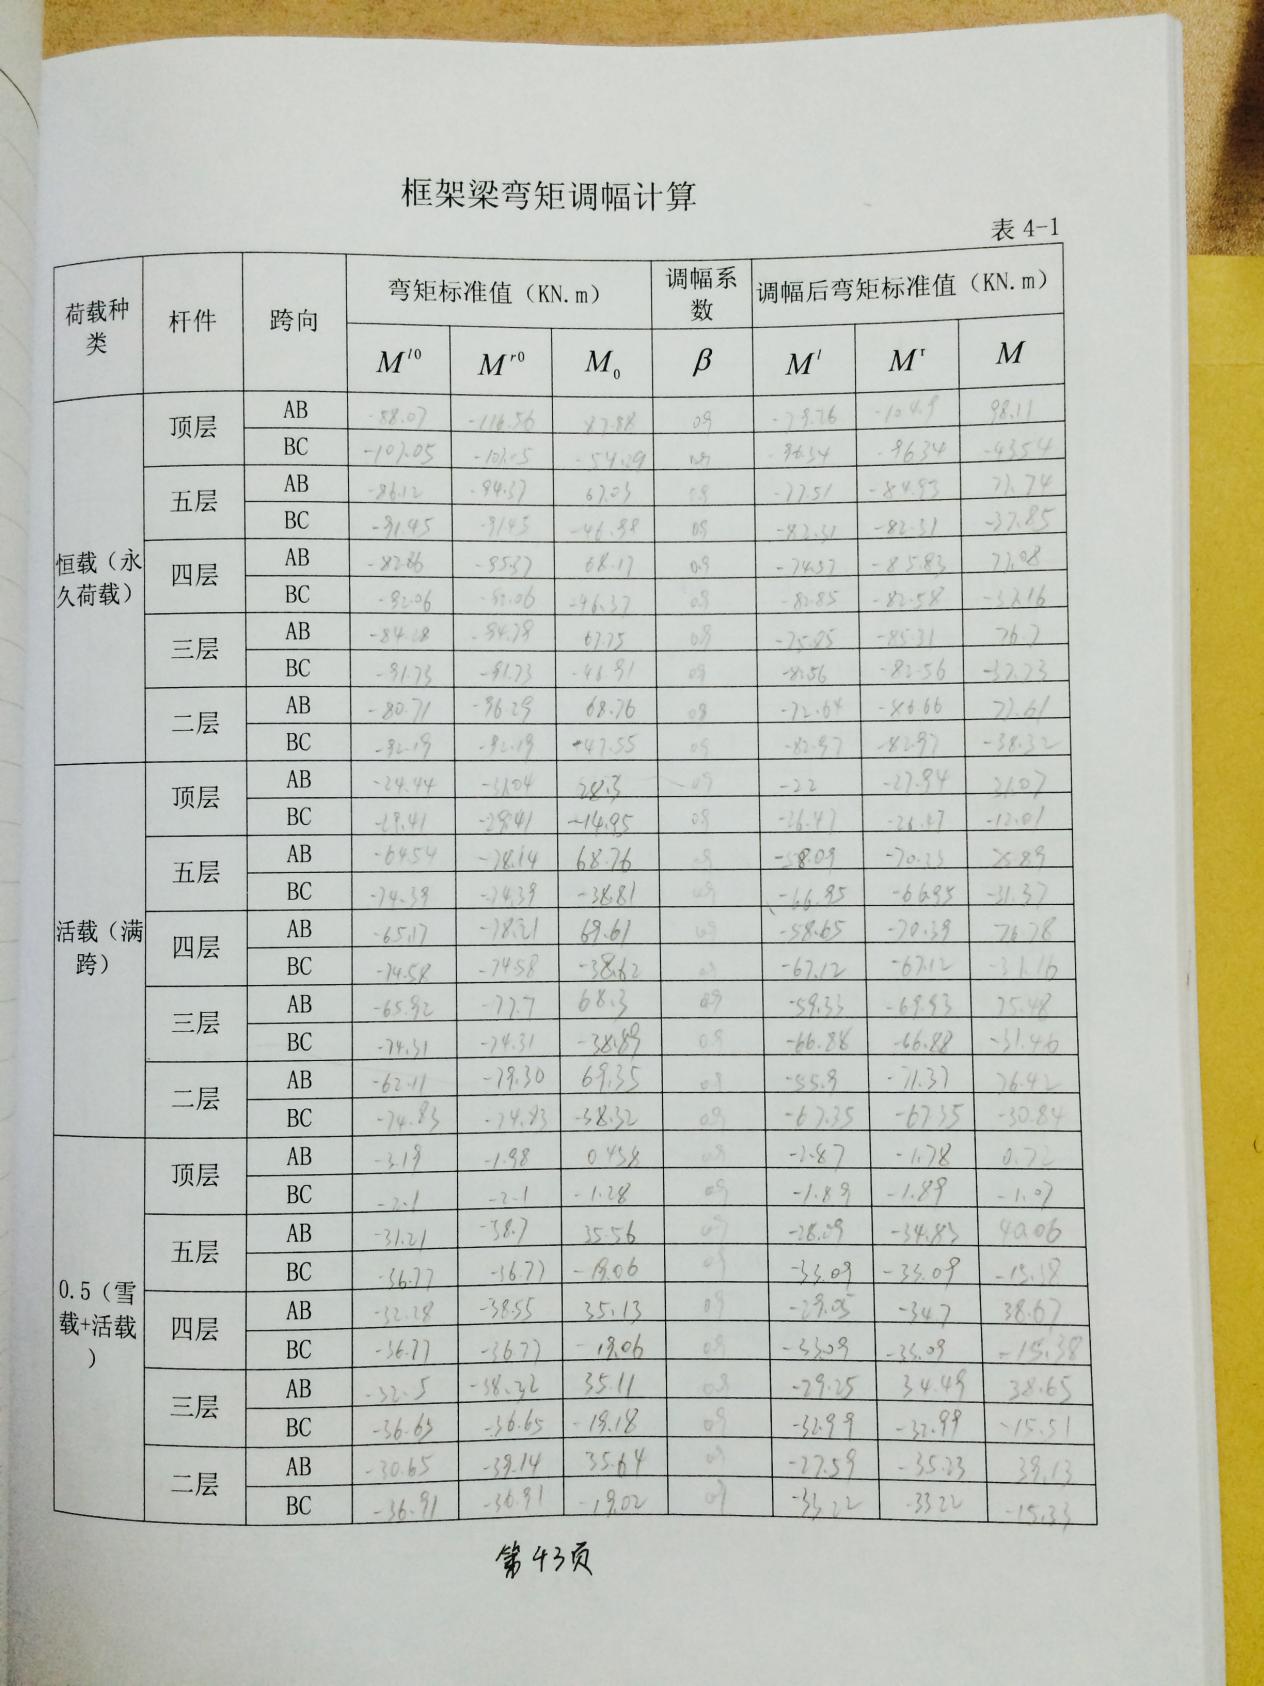 框架梁弯矩调幅计算
表 4-1
荷载种类 杆件 跨向 弯矩标准值（KN.m） 调幅系数 调幅后弯矩标准值（KN.m）
M^l0 M^r0 M₀ β M^l M^r M
恒载（永久荷载）
顶层 AB -88.07 -116.56 87.88 0.9 -79.26 -104.9 98.11
BC -107.05 -54.29 0.9 -96.34 -43.54
五层 AB -86.12 -94.37 67.03 0.9 -77.51 -84.93 77.74
BC -91.45 -91.45 -46.98 0.9 -82.31 -82.31 -37.85
四层 AB -82.86 -95.37 68.17 0.9 -74.57 -85.83 77.08
BC -92.06 -92.06 -46.37 0.9 -82.85 -82.58 -37.16
三层 AB -84.28 -94.79 67.75 0.9 -75.85 -85.31 76.7
BC -91.73 -91.73 -46.91 0.9 -82.56 -82.56 -37.73
二层 AB -80.71 -96.29 68.76 0.9 -72.64 -86.66 77.61
BC -92.19 -92.19 -47.55 0.9 -82.97 -82.97 -38.32
活载（满跨）
顶层 AB -24.44 -31.04 28.3 0.9 -22 -27.94 31.07
BC -29.41 -29.41 -14.95 0.9 -26.47 -26.47 -12.01
五层 AB -64.54 -78.14 68.76 0.9 -58.09 -70.33 75.89
BC -74.39 -74.39 -38.81 0.9 -66.95 -66.95 -31.37
四层 AB -65.17 -78.21 69.61 0.9 -58.65 -70.39 76.78
BC -74.58 -74.58 -38.62 0.9 -67.12 -67.12 -31.16
三层 AB -65.92 -77.7 68.3 0.9 -59.33 -69.93 75.48
BC -74.31 -74.31 -38.89 0.9 -66.88 -66.88 -31.46
二层 AB -62.11 -79.30 69.35 0.9 -55.9 -71.37 76.42
BC -74.83 -74.83 -38.32 0.9 -67.35 -67.35 -30.84
0.5（雪载+活载）
顶层 AB -3.19 -1.98 0.458 0.9 -2.87 -1.78 0.72
BC -2.1 -2.1 -1.28 0.9 -1.89 -1.89 -1.07
五层 AB -31.21 -38.7 35.56 0.9 -28.09 -34.83 40.06
BC -36.77 -36.77 -19.06 0.9 -33.09 -33.09 -15.38
四层 AB -32.28 -38.55 35.13 0.9 -29.05 -34.7 38.67
BC -36.77 -36.77 -19.06 0.9 -33.09 -33.09 -15.38
三层 AB -32.5 -38.32 35.11 0.9 -29.25 34.49 38.65
BC -36.65 -36.65 -19.18 0.9 -32.99 -32.99 -15.51
二层 AB -30.65 -39.14 35.64 0.9 -27.59 -35.23 39.13
BC -36.91 -36.91 -19.02 0.9 -33.22 -33.22 -15.33
第43页